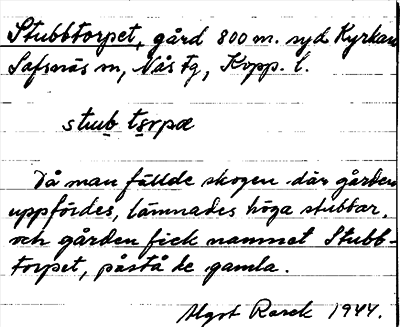 Stubbtorpet, gård 800 m. syd Kyrkan
Safsnäs sn, Nås tg, Kopp. l.
stub torpæ
Då man fällde skogen där gården
uppfördes, lämnades höga stubbar,
och gården fick namnet Stubb-
torpet, påstå de gamla.
1944.